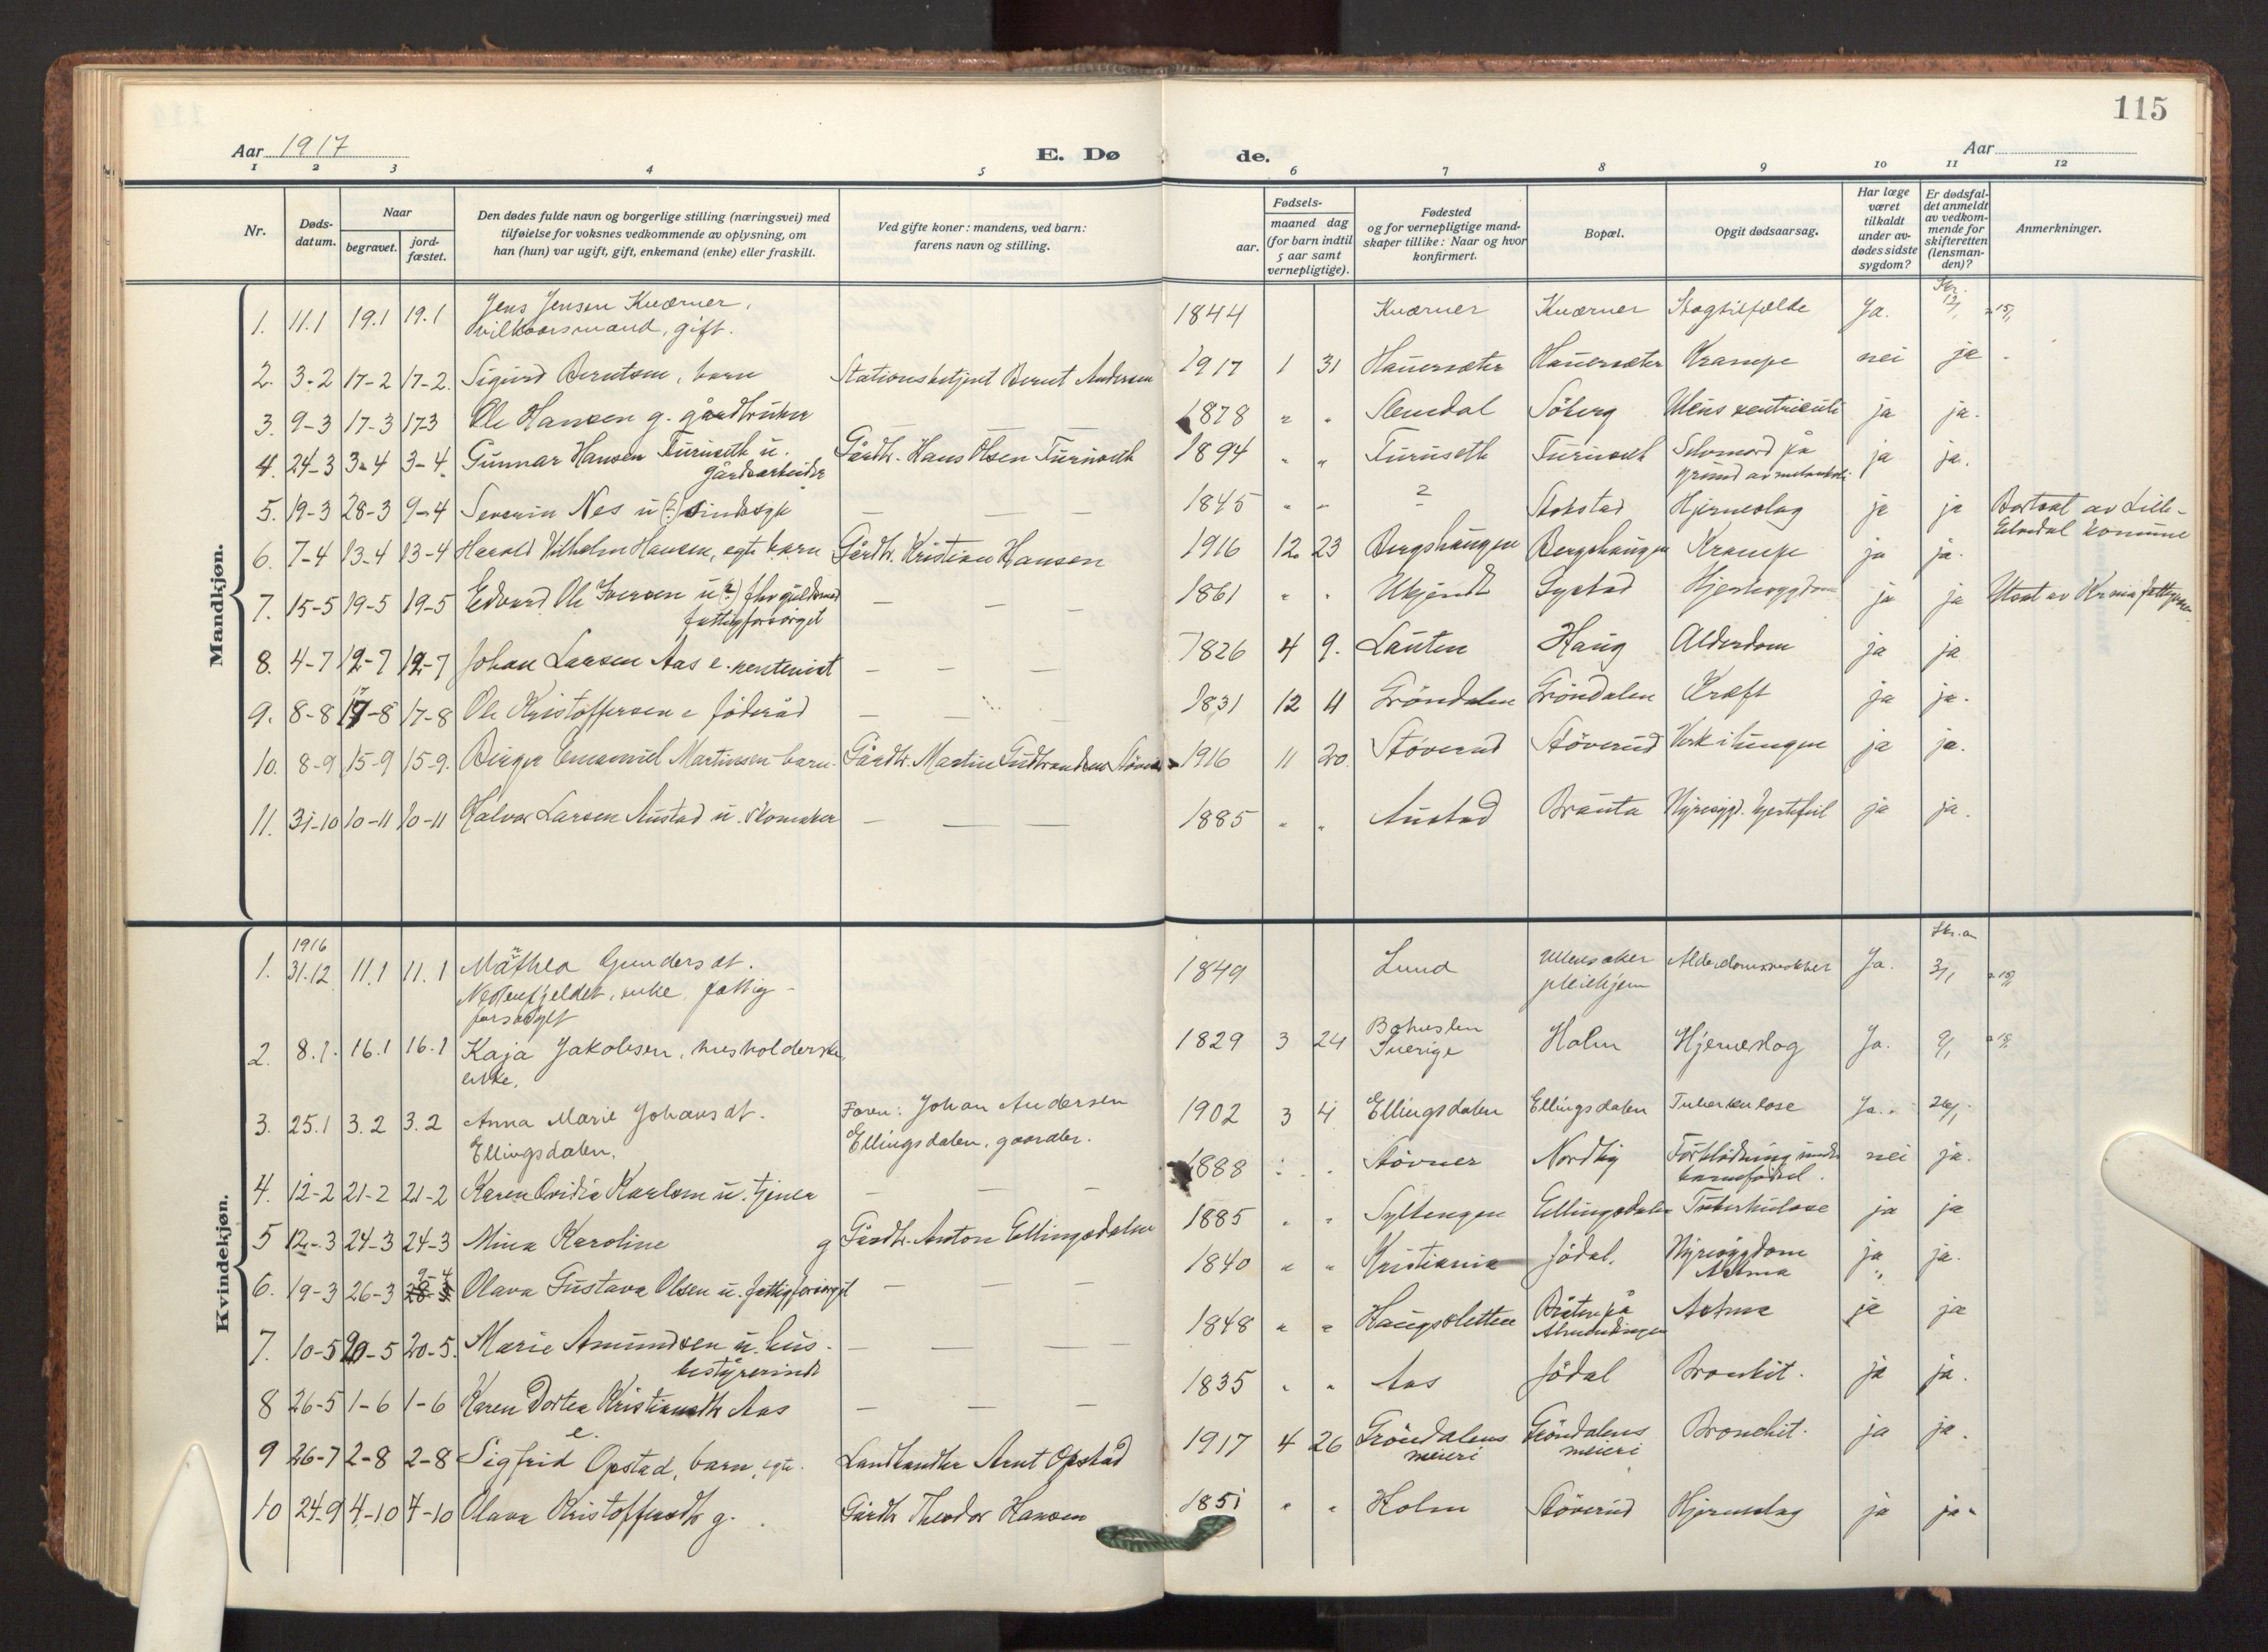 115
Aar 1917
E. Dø
de.
Aar
1 2 3 4 5 6 7 8 9 10 11 12
Nr.
Døds-
datum.
Naar
begravet.
jord-
fæstet.
Den dødes fulde navn og borgerlige stilling (næringsvei) med
tilføielse for voksnes vedkommende av oplysning, om
han (hun) var ugift, gift, enkemand (enke) eller fraskilt.
Ved gifte koner: mandens, ved barn:
farens navn og stilling.
Fødsels-
aar.
maaned dag
(for barn indtil
5 aar samt
vernepligtige).
Fødested
og for vernepligtige mand-
skaper tillike: Naar og hvor
konfirmert.
Bopæl.
Opgit dødsaarsag.
Har læge
været
tilkaldt
under av-
dødes sidste
sygdom?
Er dødsfal-
det anmeldt
av vedkom-
mende for
skifteretten
(lensman-
den)?
Anmerkninger.
Mandkjøn.
1. 11.1 19.1 19.1 Jens Jensen Kværner, 1844 Kværner Kværner Slagtilfælde Ja. 12/1 15/1
vilkaarsmand, gift.
2. 3-2 17-2 17-2. Sigurd Berntsen, barn Stationsbetjent Bernt Andersen 1917 1 31 Hauersæter Hauersæter Krampe nei ja
3. 9-3 17-3 17-3 Ole Hansen g. gårdbruker — — 1878 " " Stendal Söberg Ulcus ventriculi ja ja.
4. 24-3 3-4 3-4. Gunnar Hansen Furuseth u. Gårdbr. Hans Olsen Furuseth 1894 " " Furuseth Furuseth Selvmord på ja ja.
gårdsarbeider grund av melankoli
5. 19-3 28-3 9-4 Severin Nes u (?) sindssyk — — — 1845 " " ? Stokstad Hjerneslag ja ja Bortsat av Lille-
Elvedal komune
6. 7-4 13-4 13-4 Harald Vilhelm Hansen, egte barn Gårdbr. Kristian Hansen 1916 12 23 Bergshaugen Bergshaugen Krampe ja ja.
7. 15-5 19-5 19-5 Edvard Ole Iversen u (?) fhv guldsmed — — — 1861 " " Ukjendt Hjertesygdom ja ja Utsat av Kr.ania
fattigforsörget
8. 4-7 12-7 12-7 Johan Larsen Aas e. rentenist — — — 1826 4 9. Lauten Haug Alderdom ja ja
9. 8-8 17-8 17-8 Ole Kristoffersen e föderåd — — 1831 12 11 Gröndalen Gröndalen Kræft ja ja.
10. 8-9 15-9 15-9. Birger Emanuel Martinsen barn. Gårdbr. Martin Gudbrandsen 1916 11 20. Stöverud Stöverud Verk i lungen ja ja.
11. 31-10 10-11 10-11 Halvor Larsen Austad u. skomaker — — — 1885 " " Austad Brauta Nyresygd. hjertefeil ja ja.
Kvindekjøn.
1916
1. 31.12 11.1 11.1 Mathea Gundersdt. 1849 Lund Ullensaker Alderdomssvækker Ja. 3/1 15/1
enke, fattig- pleiehjem
forsørget
2. 8.1. 16.1 16.1 Kaja Jakobsen, husholderske, 1829 3 24 Bohuslen Holm Hjerneslag Ja. 9/1
enke. Sverige
3. 25.1 3.2 3.2 Anna Marie Johansdt. Faren: Johan Andersen 1902 3 4 Ellingsdalen Ellingsdalen Tuberkulose Ja. 26/1
Ellingsdalen. Ellingsdalen, gaardbr.
4. 12-2 21-2 21-2 Karen Ovidia Karlsen u. tjener — — — 1888 " " Stövner Nordby Forblödning under nei ja.
barnefödsel.
5 12-3 24-3 24-3 Mina Karoline g Gårdbr. Anton Ellingsdalen 1885 " " Syltengen Ellingsdalen Tuberkulose ja ja
6. 19-3 26-3 28-3 9-4 Olava Gustava Olsen u. fattigforsörget — — — 1840 " " Kristiania Jödal. Nyresygdom ja ja.
Astma
7. 10-5 20-5 20-5. Marie Amundsen u. hus- — — — 1848 " " Haugsletten Bråten på Astma ja ja
bestyrerinde Almendingen
8 26-5 1-6 1-6 Karen Dortea Kristiansdtr Aas — — — 1835 " " Aas Jödal Bronkit. ja ja.
e.
9 26-7 2-8 2-8 Sigfrid Opstad, barn, egte. Landhandler Arnt Opstad 1917 4 26 Gröndalens Gröndalens Bronchit. ja ja.
meieri meieri
10 24-9 4-10 4-10 Olava Kristoffersdtr g. Gårdbr Theodor Hansen 1851 " " Holm Stöverud Hjerneslag ja ja.